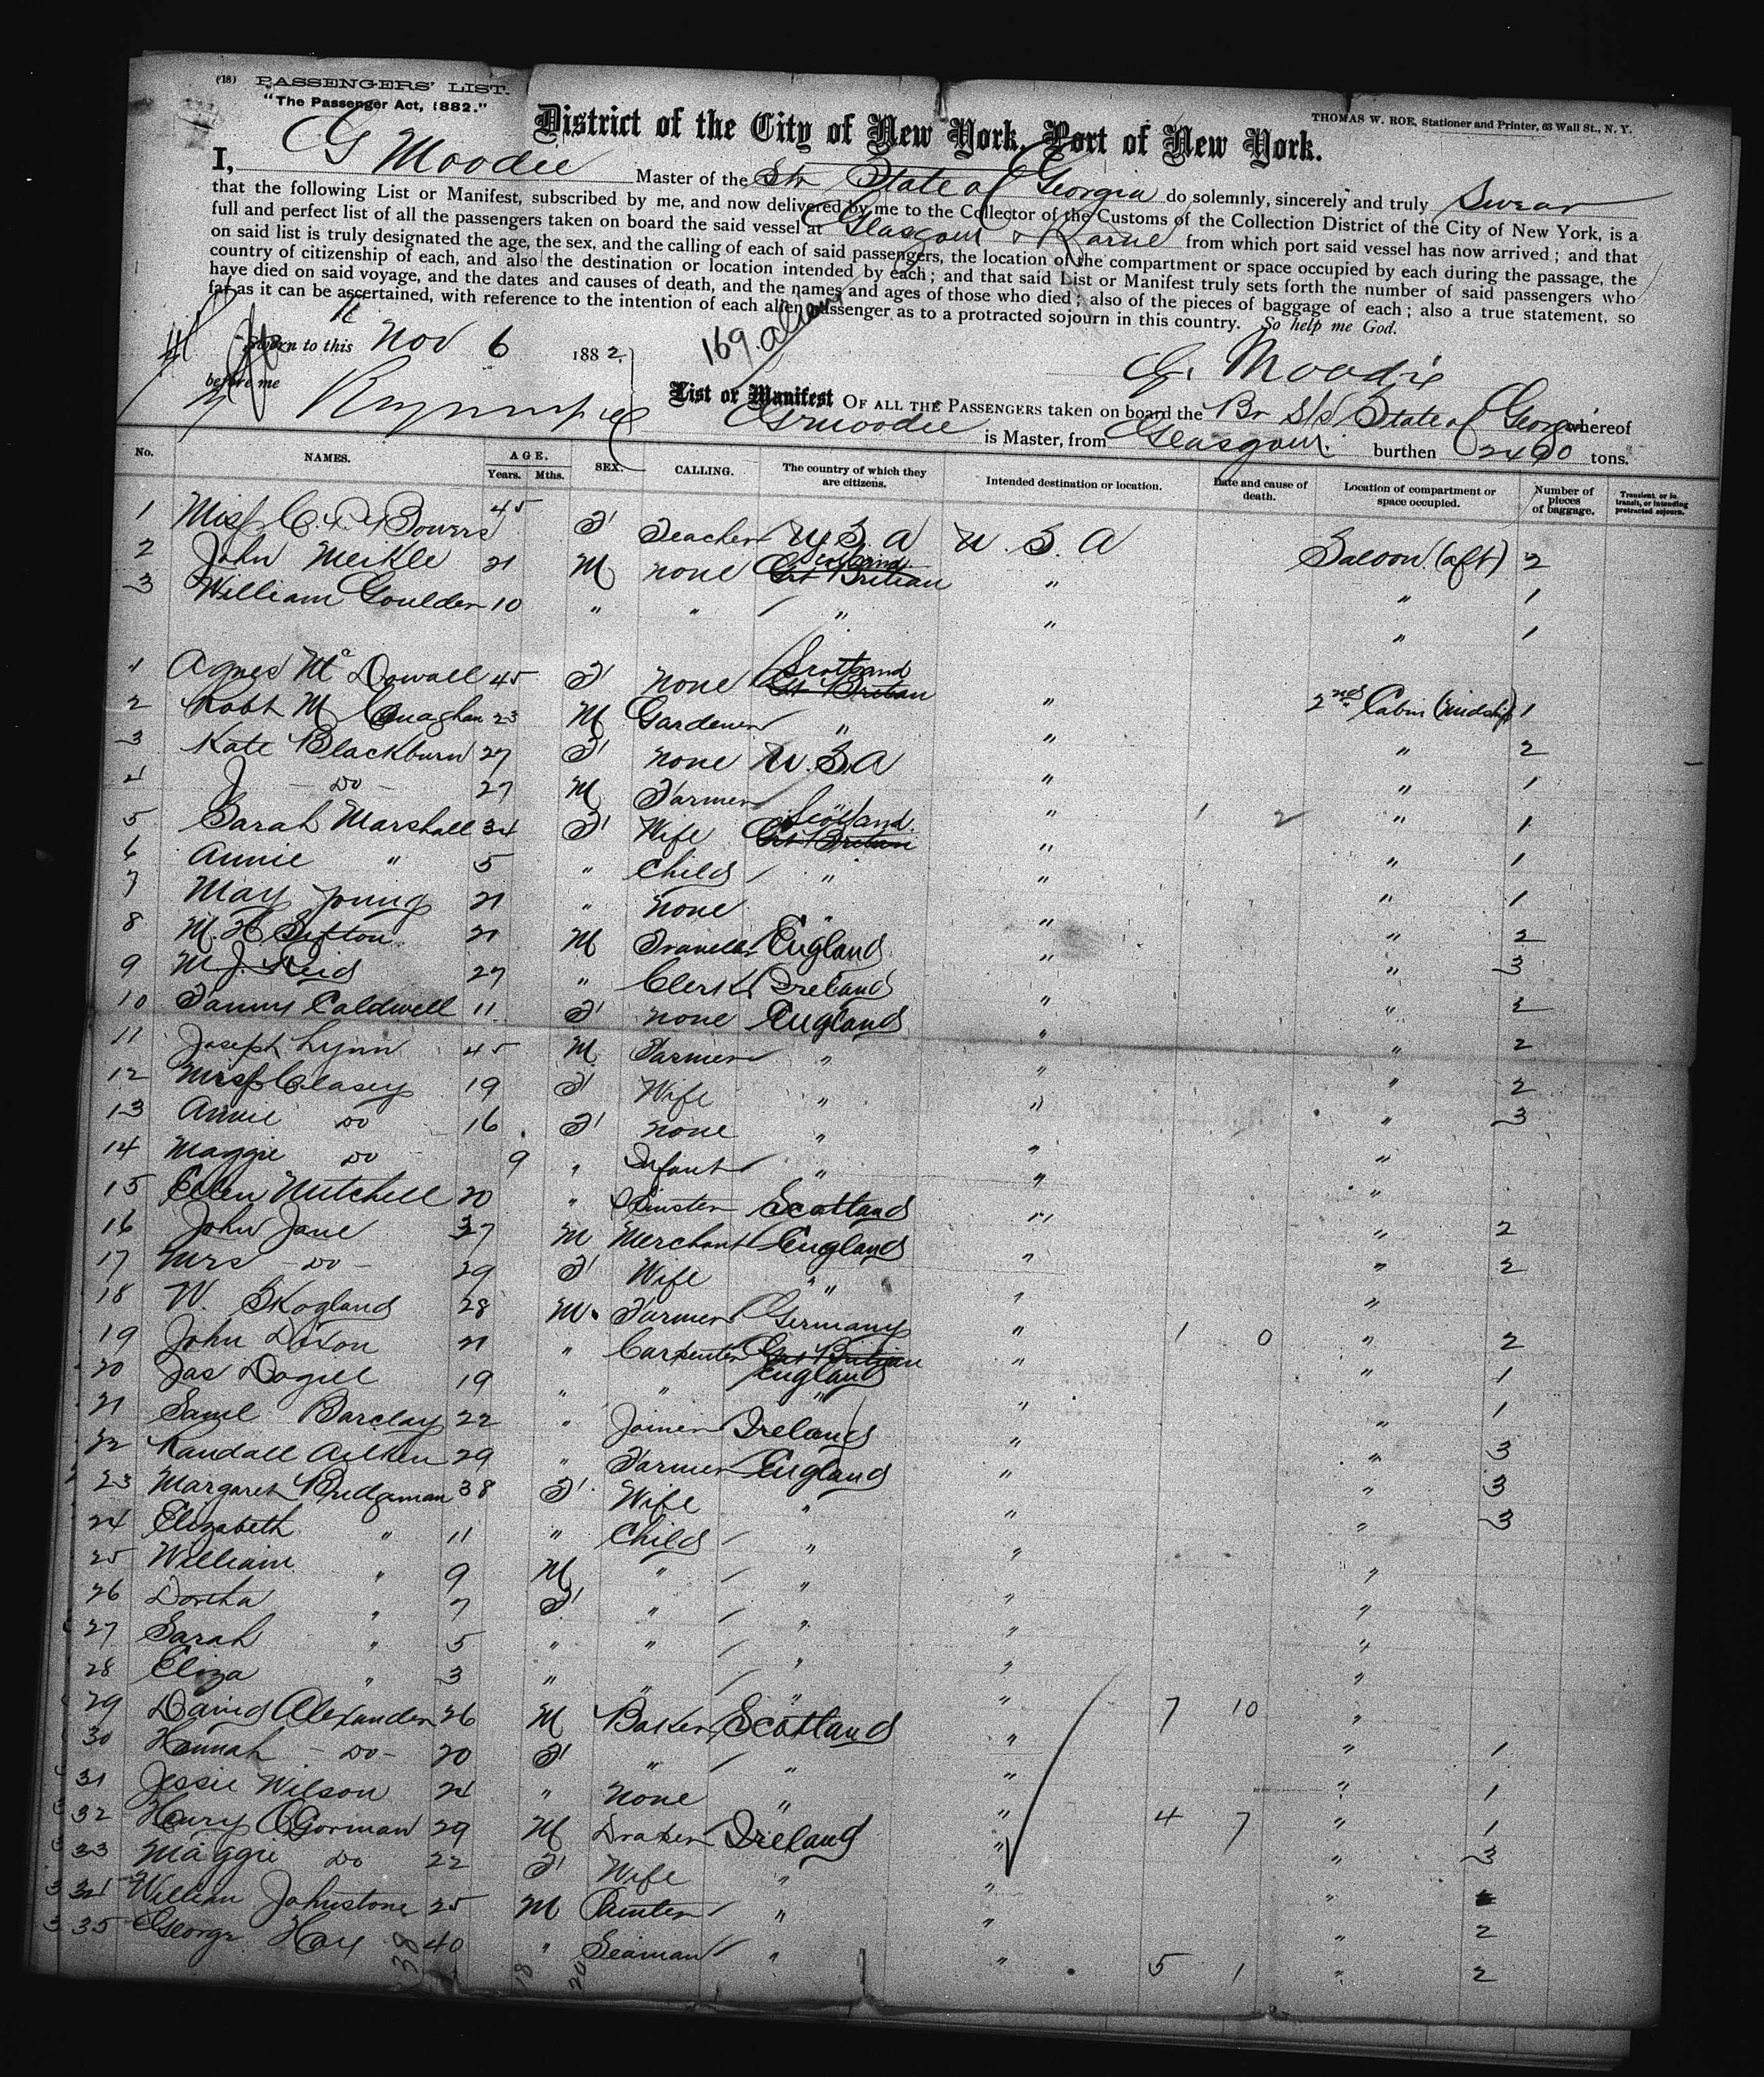 (18) PASSENGERS' LIST.
"The Passenger Act, 1882."
THOMAS W. ROE, Stationer and Printer, 63 Wall St., N. Y.
District of the City of New York, Port of New York.
I, G Moodie Master of the Str State of Georgia do solemnly, sincerely and truly Swear
that the following List or Manifest, subscribed by me, and now delivered by me to the Collector of the Customs of the Collection District of the City of New York, is a
full and perfect list of all the passengers taken on board the said vessel at Glasgow & Larne from which port said vessel has now arrived; and that
on said list is truly designated the age, the sex, and the calling of each of said passengers, the location of the compartment or space occupied by each during the passage, the
country of citizenship of each, and also the destination or location intended by each; and that said List or Manifest truly sets forth the number of said passengers who
have died on said voyage, and the dates and causes of death, and the names and ages of those who died; also of the pieces of baggage of each; also a true statement, so
far as it can be ascertained, with reference to the intention of each alien passenger as to a protracted sojourn in this country. So help me God.
Sworn to this Nov 6 1882
169
G. Moodie
before me
List or Manifest OF ALL THE PASSENGERS taken on board the Br S/S State of Georgia whereof
G Moodie is Master, from Glasgow burthen 2490 tons.
No. NAMES. AGE. Years. Mths. SEX. CALLING. The country of which they are citizens. Intended destination or location. Date and cause of death. Location of compartment or space occupied. Number of pieces of baggage. Transient, or in transit, or intending protracted sojourn.
1 Miss C. Bowers 45 F Teacher U.S.A U.S.A Saloon (aft) 2
2 John Meikle 21 M none Scotland Grt Britian " " 1
3 William Goulden 10 " " / " " " 1
1 Agnes McDowall 45 F none Scotland Grt Britian " 2nd Cabin (midship) 1
2 Robt M Conaghan 23 M Gardener " " " 2
3 Kate Blackburn 27 F none U.S.A " " 1
4 J - Do - 27 M Farmer " " 1 2 " 1
5 Sarah Marshall 34 F Wife Scotland Grt Britian " " 1
6 Annie " 5 " Child / " " " 1
7 May Young 21 " none " " " 2
8 M. H. Sifton 21 M Traveller England " " 3
9 M J. Reid 27 " Clerk Ireland " " 2
10 Fanny Caldwell 11 F none England " " 2
11 Joseph Lynn 45 M Farmer " " " 2
12 Clasey 19 F Wife " " " 3
13 Annie Do 16 F none " " "
14 Maggie Do 9 " Infant / " " "
15 Ellen Mitchell 20 " Spinster Scotland " " 2
16 John Jane 37 M Merchant England " " 2
17 Mrs - Do - 29 F Wife " " "
18 W. Skogland 28 M Farmer Germany " 1 0 " 2
19 John Dixon 21 " Carpenter Grt Britian England " " 1
20 Jas Dogill 19 " " " " " 1
21 Saml Barclay 22 " Joiner Ireland " " 3
22 Randall Aitken 29 " Farmer England " " 3
23 Margaret Bridgaman 38 F Wife " " " 3
24 Elizabeth " 11 " Child / " " "
25 William " 9 M " / " " "
26 Dortha " 7 F " / " " "
27 Sarah " 5 " " / " " "
28 Eliza " 3 " " / " " "
29 David Alexander 26 M Baker Scotland " 7 10 " 1
30 Hannah - Do - 20 F " / " " " 1
31 Jessie Wilson 24 " none " " " 1
32 Henry O Gorman 29 M Draper Ireland " 4 7 " 3
33 Maggie Do 22 F Wife " " "
34 William Johnstone 25 M Painter / " " " 2
35 George Hay 40 " Seaman / " " 5 1 " 2
38 18 20